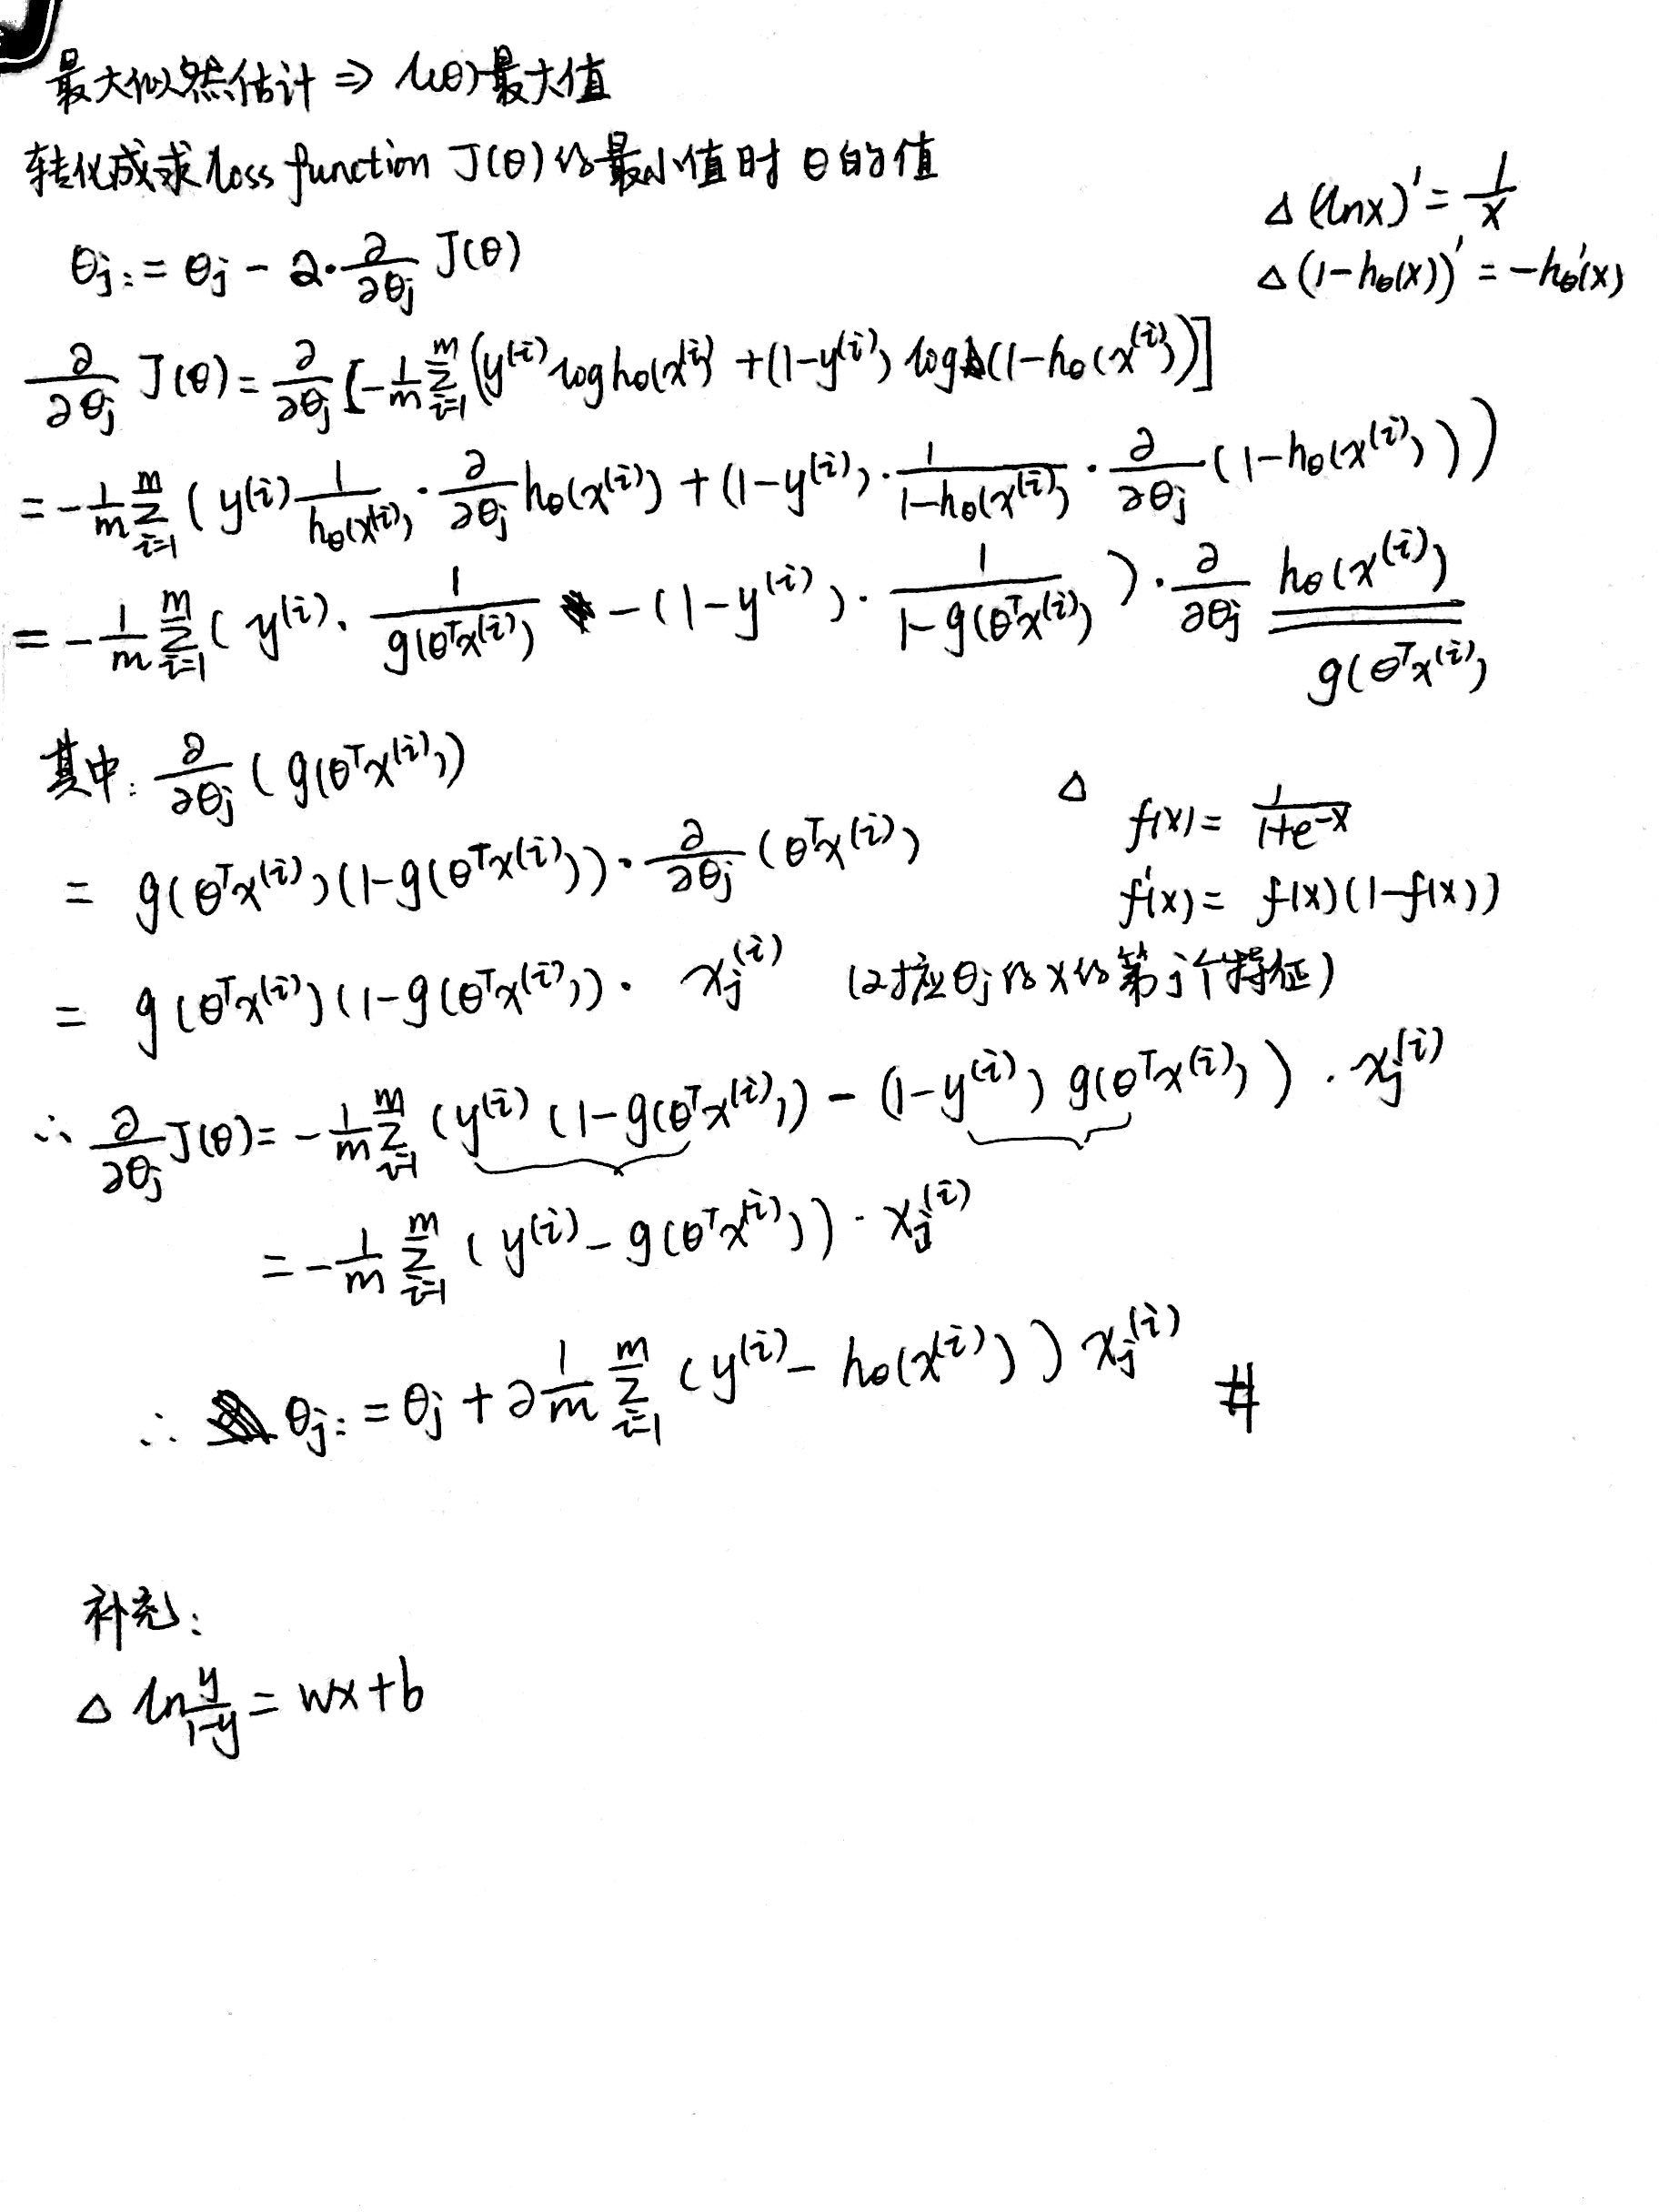 最大似然估计 ⇒ l(θ)最大值
转化成求 loss function J(θ) 的最小值时 θ的值
△ (lnx)' = 1/x
θj := θj - α·∂/∂θj J(θ)
△ (1-hθ(x))' = -hθ'(x)
∂/∂θj J(θ) = ∂/∂θj [-1/m Σ_{i=1}^{m} (y^(i) log hθ(x^(i)) + (1-y^(i)) log (1-hθ(x^(i)))]
= -1/m Σ_{i=1}^{m} ( y^(i) 1/hθ(x^(i)) · ∂/∂θj hθ(x^(i)) + (1-y^(i)) · 1/(1-hθ(x^(i))) · ∂/∂θj (1-hθ(x^(i))) )
= -1/m Σ_{i=1}^{m} ( y^(i) · 1/g(θᵀx^(i)) - (1-y^(i)) · 1/(1-g(θᵀx^(i))) ) · ∂/∂θj hθ(x^(i))
g(θᵀx^(i))
其中: ∂/∂θj ( g(θᵀx^(i)) )
= g(θᵀx^(i)) (1-g(θᵀx^(i))) · ∂/∂θj (θᵀx^(i))
△ f(x) = 1/(1+e^-x)
f'(x) = f(x)(1-f(x))
= g(θᵀx^(i)) (1-g(θᵀx^(i))) · xj^(i) (对应θj的x的第j个特征)
∴ ∂/∂θj J(θ) = -1/m Σ_{i=1}^{m} (y^(i) (1-g(θᵀx^(i))) - (1-y^(i)) g(θᵀx^(i)) ) · xj^(i)
= -1/m Σ_{i=1}^{m} ( y^(i) - g(θᵀx^(i)) ) · xj^(i)
∴ θj := θj + α 1/m Σ_{i=1}^{m} (y^(i) - hθ(x^(i)) ) xj^(i) #
补充:
△ ln y/(1-y) = wx+b